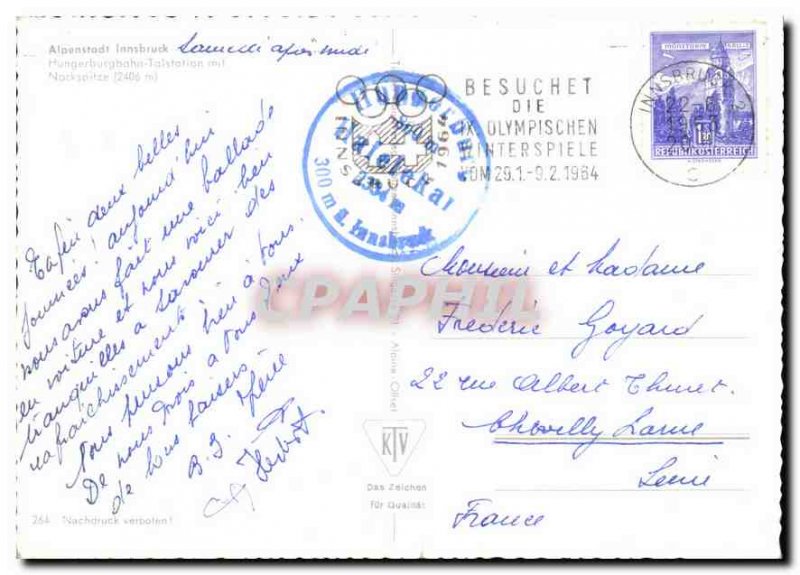 Alpenstadt Innsbruck
Hungerburgbahn-Talstation mit
Nockspitze (2406 m)
Samedi après midi
Enfin deux belles
journées ! aujourd'hui
nous avons fait une ballade
en voiture et nous voici bien
tranquilles à savourer des
rafraîchissements
Nous pensons bien à tous.
De nous trois à tous deux
de bons baisers
264 Nachdruck verboten!
Hafelekar
2334 m
300 m ü. Innsbruck
INNSBRUCK 1964
BESUCHET
DIE
IX. OLYMPISCHEN
WINTERSPIELE
VOM 29.1.-9.2.1964
INNSBRUCK 2
C
1.50
REPUBLIK ÖSTERREICH
Alpine Offset
KTV
Das Zeichen
für Qualität
CPAPHIL
Monsieur et Madame
Frédéric Goyard
22 rue Albert Thuret
Chevilly Larue
Seine
France